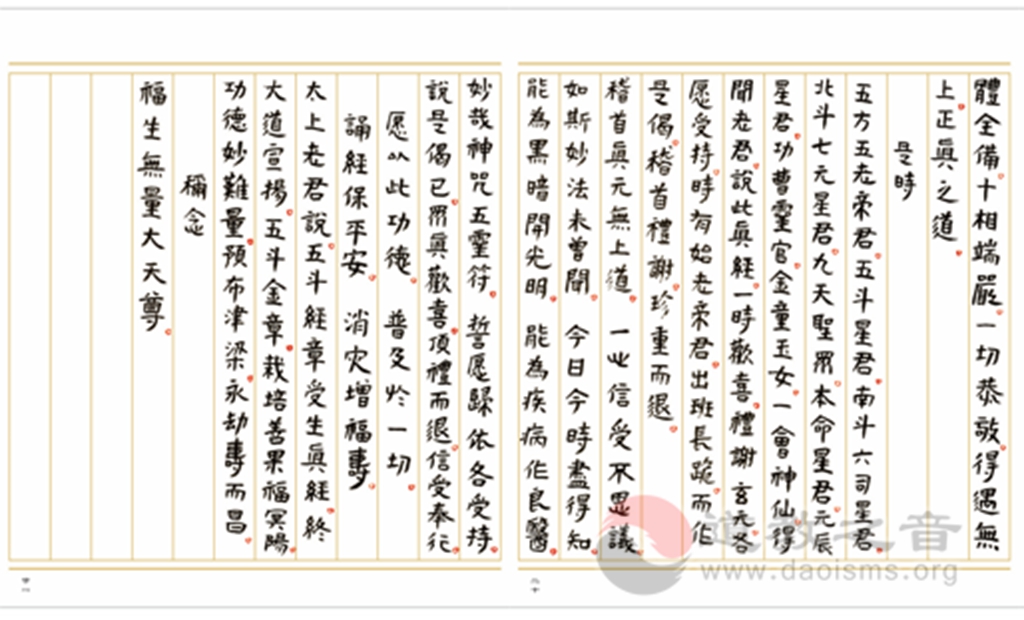 體全備十相端嚴一切恭敬得遇無
上正眞之道
是時
五方五老帝君五斗星君南斗六司星君
北斗七元星君九天聖眾本命星君元辰
星君功曹靈官金童玉女一會神仙得
聞老君說此眞經一時歡喜禮謝玄元各
愿受持時有始老帝君出班長跪而作
是偈稽首禮謝珍重而退
稽首眞元無上道 一心信受不思議
如斯妙法未曾聞 今日今時盡得知
能為黑暗開光明 能為疾病作良醫
妙哉神咒五靈符 誓愿歸依各受持
說是偈已眾眞歡喜頂禮而退信受奉行
愿以此功德 普及於一切
誦經保平安 消災增福壽
太上老君說五斗經章受生眞經終
大道宣揚五斗金章栽培善果福冥陽
功德妙難量預布津梁永劫壽而昌
稱念
福生無量大天尊
道教之音
www.daoisms.org